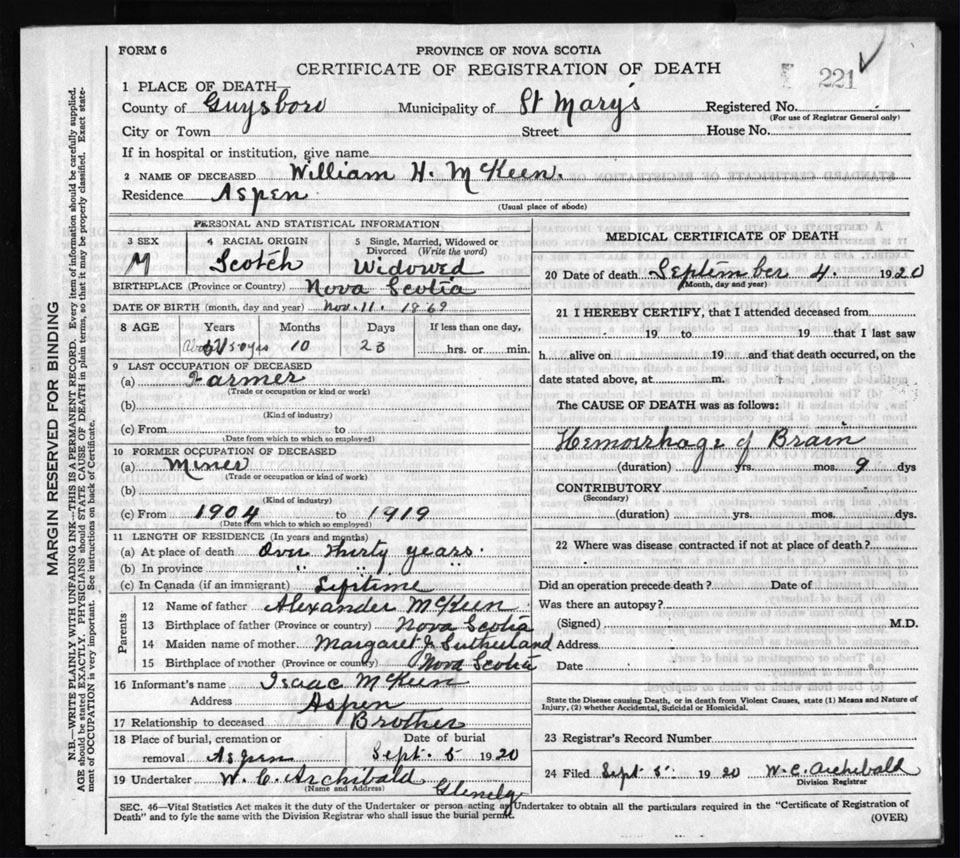 FORM 6
PROVINCE OF NOVA SCOTIA
CERTIFICATE OF REGISTRATION OF DEATH
221
1 PLACE OF DEATH
County of Guysboro Municipality of St Mary's Registered No.
(For use of Registrar General only)
City or Town Street House No.
If in hospital or institution, give name
2 NAME OF DECEASED William H. McKeen.
Residence Aspen
(Usual place of abode)
PERSONAL AND STATISTICAL INFORMATION
3 SEX 4 RACIAL ORIGIN 5 Single, Married, Widowed or Divorced (Write the word)
M Scotch Widowed
BIRTHPLACE (Province or Country) Nova Scotia
DATE OF BIRTH (month, day and year) Nov. 11. 1869
8 AGE Years Months Days If less than one day,
50 yrs 10 23 hrs. or min.
9 LAST OCCUPATION OF DECEASED
(a) Farmer
(Trade or occupation or kind or work)
(b)
(Kind of industry)
(c) From to
(Date from which to which so employed)
10 FORMER OCCUPATION OF DECEASED
(a) Miner
(Trade or occupation or kind of work)
(b)
(Kind of industry)
(c) From 1904 to 1919
(Date from which to which so employed)
11 LENGTH OF RESIDENCE (In years and months)
(a) At place of death Over thirty years.
(b) In province " " "
(c) In Canada (if an immigrant) Lifetime
Parents
12 Name of father Alexander McKeen
13 Birthplace of father (Province or country) Nova Scotia
14 Maiden name of mother Margaret J Sutherland
15 Birthplace of mother (Province or country) Nova Scotia
16 Informant's name Isaac McKeen
Address Aspen
17 Relationship to deceased Brother
18 Place of burial, cremation or removal Aspen Date of burial Sept. 5 1920
19 Undertaker W. C. Archibald
(Name and Address) Glenelg
MEDICAL CERTIFICATE OF DEATH
20 Date of death September 4. 1920
(Month, day and year)
21 I HEREBY CERTIFY, that I attended deceased from
19 to 19 that I last saw
h alive on 19 and that death occurred, on the
date stated above, at m.
The CAUSE OF DEATH was as follows:
Hemorrhage of Brain
(duration) yrs. mos. 9 dys
CONTRIBUTORY
(Secondary)
(duration) yrs. mos. dys.
22 Where was disease contracted if not at place of death?
Did an operation precede death? Date of
Was there an autopsy?
(Signed) M.D.
Address
Date
State the Disease causing Death, or in death from Violent Causes, state (1) Means and Nature of
Injury, (2) whether Accidental, Suicidal or Homicidal.
23 Registrar's Record Number
24 Filed Sept 5 1920 W. C. Archibald
Division Registrar
SEC. 46—Vital Statistics Act makes it the duty of the Undertaker or person acting as Undertaker to obtain all the particulars required in the "Certificate of Registration of
Death" and to fyle the same with the Division Registrar who shall issue the burial permit.
(OVER)
MARGIN RESERVED FOR BINDING
N.B.—WRITE PLAINLY WITH UNFADING INK—THIS IS A PERMANENT RECORD. Every item of information should be carefully supplied.
AGE should be stated EXACTLY. PHYSICIANS should STATE CAUSE OF DEATH in plain terms, so that it may be properly classified. Exact state-
ment of OCCUPATION is very important. See instructions on back of Certificate.